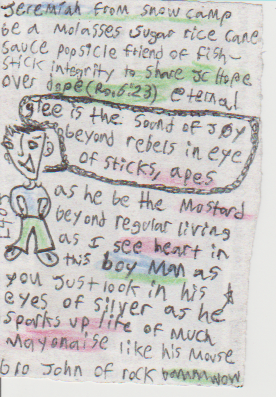 Jeremiah from snow camp
be a molasses sugar rice cane
sauce popsicle friend of fish-
stick integrity to share JC Hope
over dope (Ro. 6:23) eternal
Glee is the sound of JOY
beyond rebels in eye
of sticks, apes
as he be the Mostard
beyond regular living
as I see heart in
this boy Man as
you just look in his
eyes of silver as he
sparks up life of Much
Mayonaise like his Mouse
bro John of rock bammwow